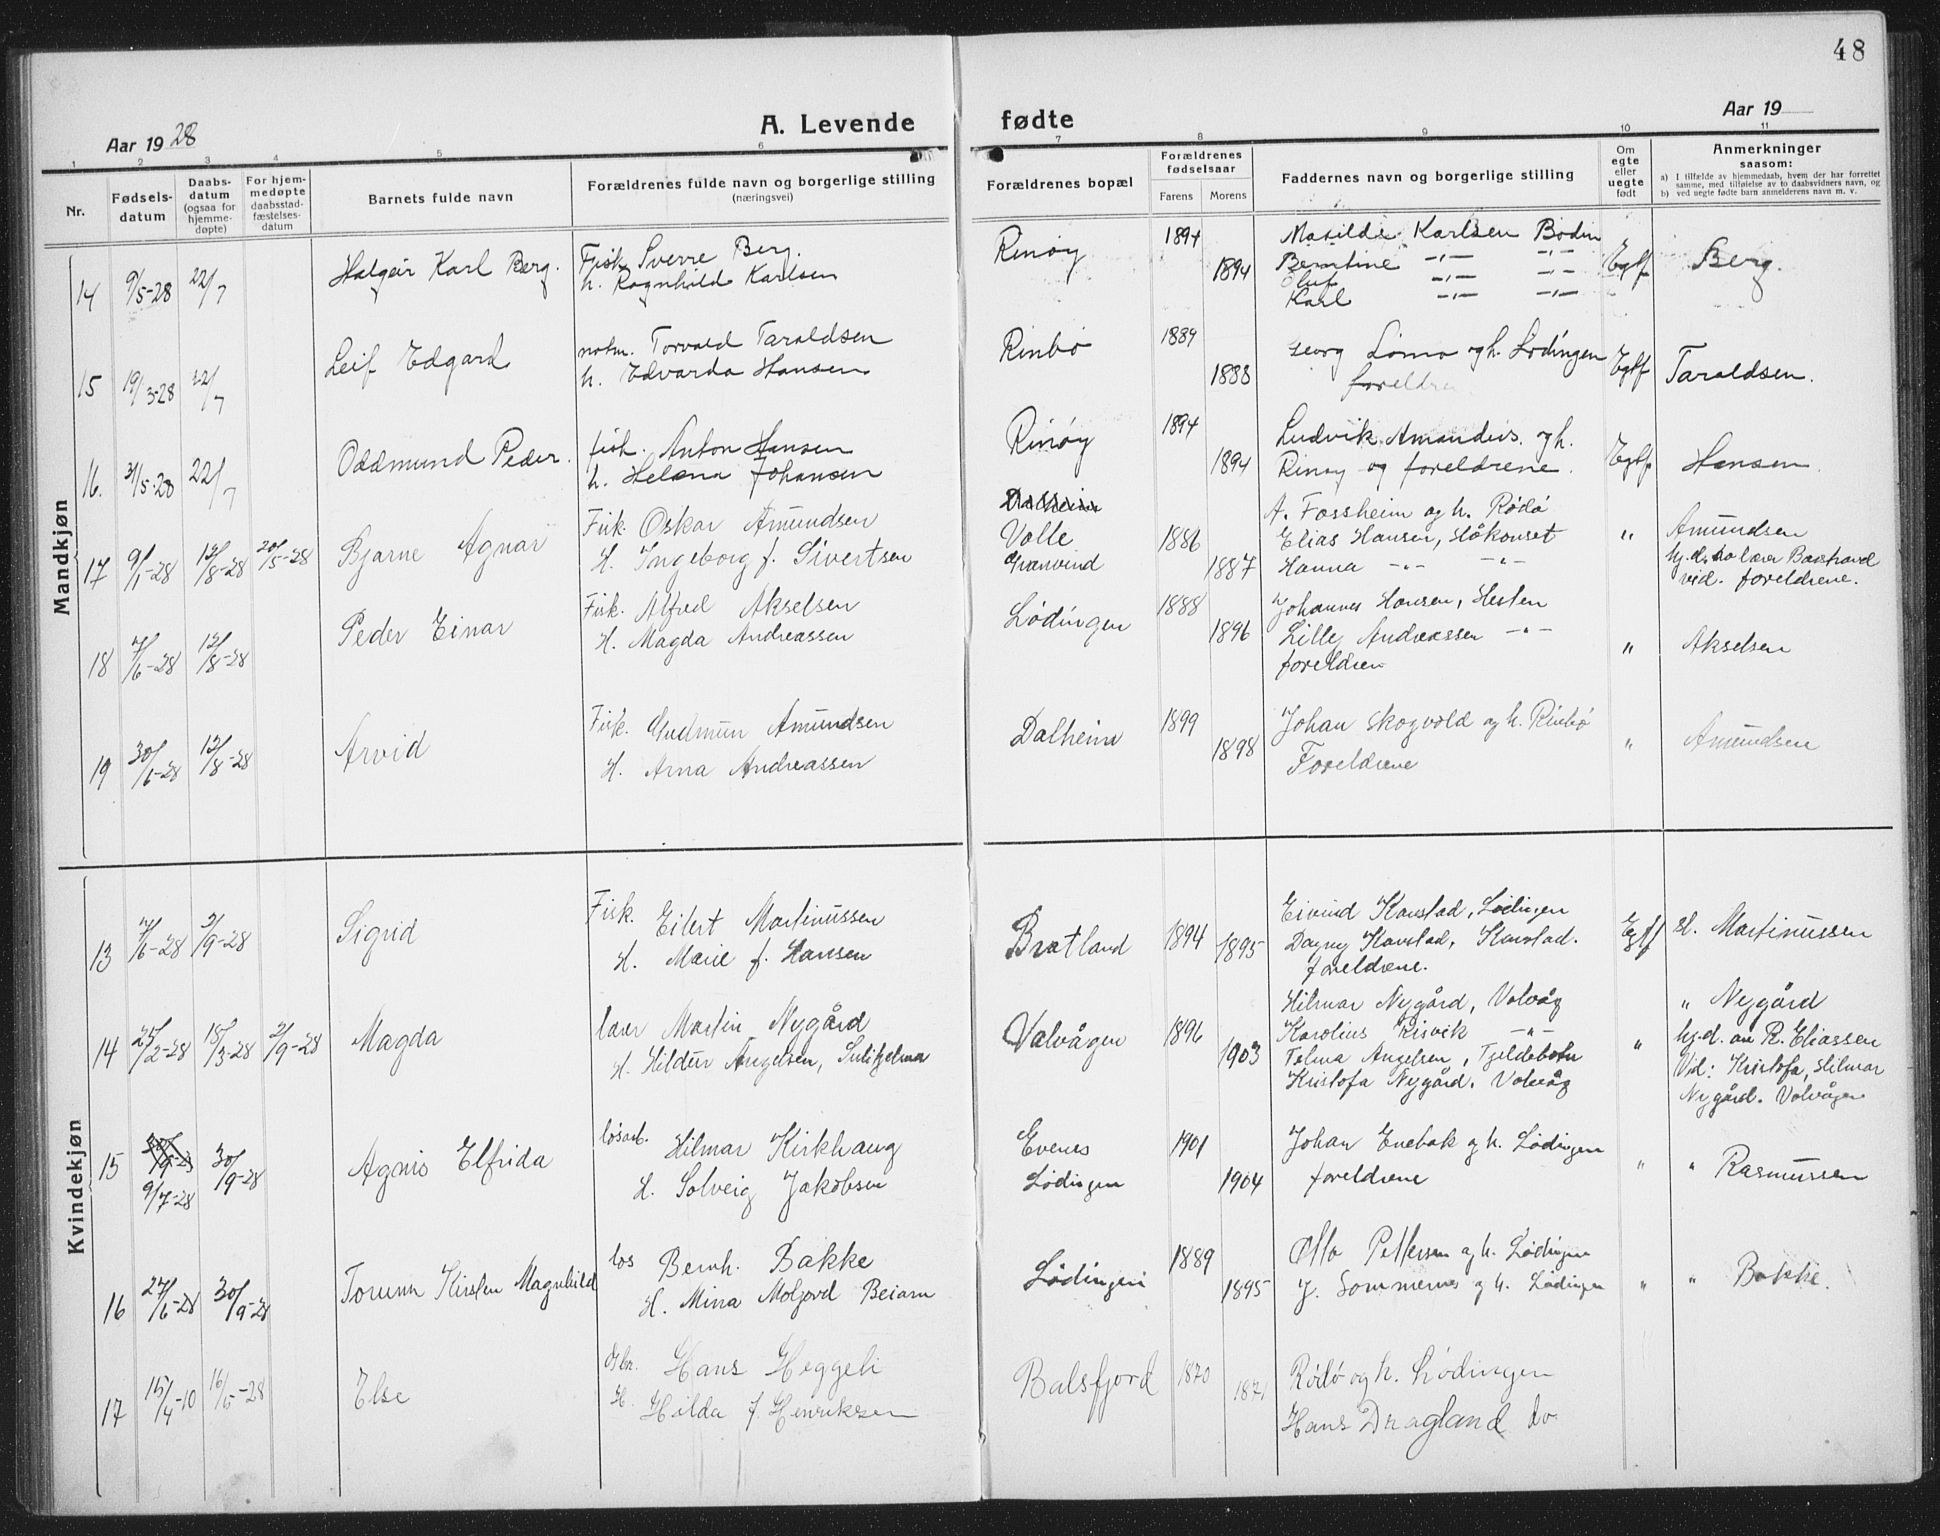 48
Aar 1928
A. Levende fødte
Aar 19
1 2 3 4 5 6 7 8 9 10 11
Nr.
Fødsels-
datum
Daabs-
datum
(ogsaa for
hjemme-
døpte)
For hjem-
medøpte
daabsstad-
fæstelses-
datum
Barnets fulde navn
Forældrenes fulde navn og borgerlige stilling
(næringsvei)
Forældrenes bopæl
Forældrenes
fødselsaar
Farens Morens
Faddernes navn og borgerlige stilling
Om
egte
eller
uegte
født
Anmerkninger
saasom:
a) I tilfælde av hjemmedaab, hvem der har forrettet
samme, med tilføielse av to daabsvidners navn, og
b) ved uegte fødte barn anmelderens navn m. v.
Mandkjøn
14 9/5-28 22/7
Halgeir Karl Berg.
Fisk. Sverre Berg.
h. Ragnhild Karlsen
Rinøy
1894
1894
Matilde Karlsen Bodin
Berntine -"- -"-
Oluf -"- -"-
Karl -"- -"-
Egtf
Berg.
15 19/3-28 22/7
Leif Edgard
notm. Torvald Taraldsen
h. Edvarda Hansen
Rinbø
1889
1888
Georg Lomo og h. Lødingen
foreldre
Egtf
Taraldsen.
16. 31/5-28 22/7
Oddmund Peder.
fisk. Anton Hansen
h. Helena Johansen
Rinøy
1894
1894
Ludvik Amandus. og h.
Rinøy og foreldrene.
Egtf
Hansen.
17 9/1-28 12/8-28 20/5-28
Bjarne Agnar
Fisk. Oskar Amundsen
H. Ingeborg f. Sivertsen
Dalheim
Valle
Granvind
1886
1887
A. Fossheim og h. Rødø
Elias Hansen, Håkonset
Hanna -"- -"-
"
Amundsen
hj.d. av lærer Baastrand
vid. foreldrene.
18 7/6-28 12/8-28
Peder Einar
Fisk. Alfred Akselsen
H. Magda Andreassen
Lødingen
1888
1896
Johannes Hansen, Hesten
Lilly Andreassen -"-
foreldren
"
Akselsen
19 30/6-28 12/8-28
Arvid
Fisk. Gudmun Amundsen
H. Arna Andreassen
Dalheim
1899
1898
Johan Skogvold og h. Rinbø
Foreldrene
"
Amundsen
Kvindekjøn
13 7/6-28 2/9-28
Sigrid
Fisk. Eilert Martinussen
H. Marie f. Hansen
Bratland
1894
1895
Eivind Kanstad, Lødingen
Dagny Kanstad, Kanstad.
foreldrene.
Egtf
H. Martinussen
14 25/2-28 18/3-28 2/9-28
Magda
lærer Martin Nygård
H. Hildur Angelsen, Sulitjelma
Valvågen
1896
1903
Hilmar Nygård, Valvåg
Karolius Risvik -"-
Telma Angelsen, Tjeldebotn
Kristofa Nygård. Valvåg
"
" Nygård
hj.d. av R. Eliassen
Vid: Kristofa, Hilmar
Nygård. Valvågen
15 9/7-28 30/9-28
Agnis Elfrida
løsarb. Hilmar Kirkhaug
H. Solveig Jakobsen
Evenes
Lødingen
1901
1904
Johan Enebak og h. Lødingen
foreldrene
"
" Rasmussen
16 27/6-28 30/9-28
Torunn Kirsten Magnhild
los Bernh. Bakke
H. Mina Moljord Beiarn
Lødingen
1889
1895
Otto Pettersen og h. Lødingen
J. Sommernes og h. Lødingen
"
" Bakke.
17 15/4-10 16/5-28
Else
Hans Heggeli
H. Hilda f. Henriksen
Balsfjord
1870
1871
Rødø og h. Lødingen
Hans Dragland do